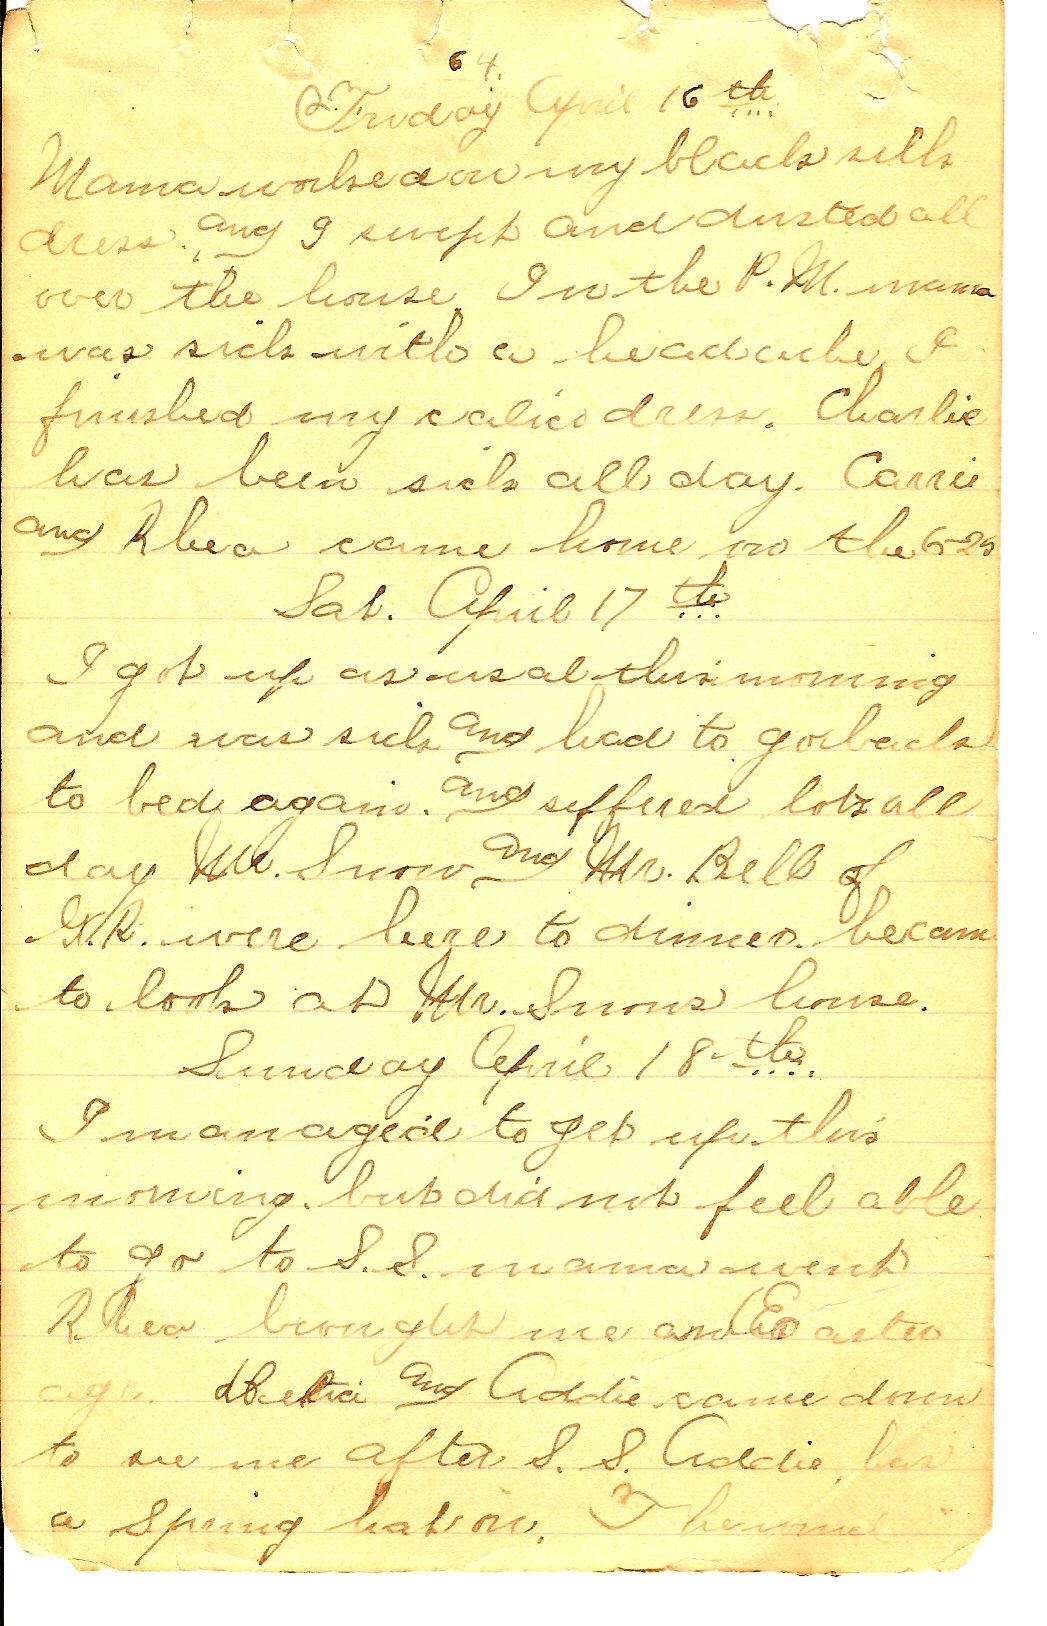 64.
Friday April 16th
Mama worked on my black silk
dress. and I swept and dusted all
over the house. In the P.M. mama
was sick with a headache, I
finished my calico dress. Charlie
has been sick all day. Carrie
and Rhea came home on the 6-25
Sat. April 17th
I got up as usal this morning
and was sick and had to go back
to bed again. and suffered lots all
day Mr. Snow and Mr. Bell of
G.R. were here to dinner. he came
to look at Mr. Snows house.
Sunday April 18th
I managed to get up this
morning. but did not feel able
to go to S.S. mama went
Rhea brought me an Easter
age. and Addie came down
to see me after S.S. Addie has
a Spring hat on. The